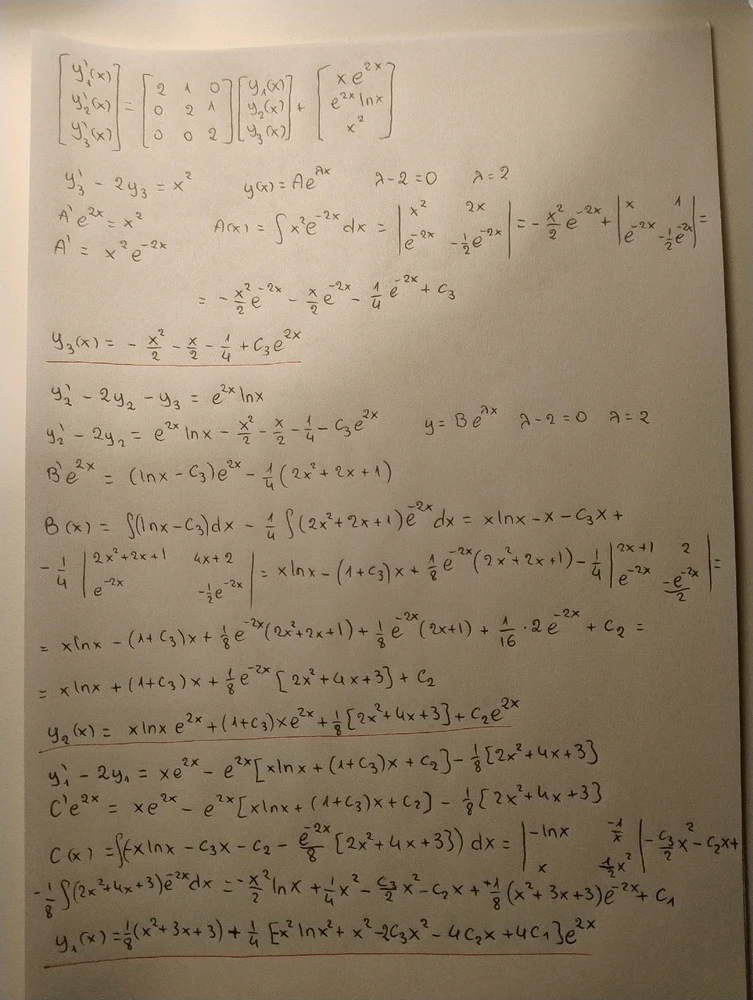 [y₁'(x) y₂'(x) y₃'(x)] = [2 1 0; 0 2 1; 0 0 2] [y₁(x) y₂(x) y₃(x)] + [x e^{2x}; e^{2x} ln x; x²]
y₃' - 2y₃ = x²   y(x) = Ae^{λx}   λ - 2 = 0   λ = 2
A'e^{2x} = x²   A(x) = ∫ x² e^{-2x} dx = |x² 2x; e^{-2x} -½e^{-2x}| = -x²/2 e^{-2x} + |x 1; e^{-2x} -½e^{-2x}| =
A' = x² e^{-2x}
= -x²/2 e^{-2x} - x/2 e^{-2x} - 1/4 e^{-2x} + C₃
y₃(x) = -x²/2 - x/2 - 1/4 + C₃e^{2x}
y₂' - 2y₂ - y₃ = e^{2x} ln x
y₂' - 2y₂ = e^{2x} ln x - x²/2 - x/2 - 1/4 - C₃e^{2x}   y = Be^{λx}   λ - 2 = 0   λ = 2
B'e^{2x} = (ln x - C₃)e^{2x} - 1/4(2x² + 2x + 1)
B(x) = ∫(ln x - C₃)dx - 1/4 ∫(2x² + 2x + 1)e^{-2x} dx = x ln x - x - C₃x +
-1/4 |2x² + 2x + 1 4x + 2; e^{-2x} -½e^{-2x}| = x ln x - (1 + C₃)x + 1/8 e^{-2x}(2x² + 2x + 1) - 1/4 |2x + 1 2; e^{-2x} -e^{-2x}/2| =
= x ln x - (1 + C₃)x + 1/8 e^{-2x}(2x² + 2x + 1) + 1/8 e^{-2x}(2x + 1) + 1/16 · 2e^{-2x} + C₂ =
= x ln x + (1 + C₃)x + 1/8 e^{-2x}[2x² + 4x + 3] + C₂
y₂(x) = x ln x e^{2x} + (1 + C₃)xe^{2x} + 1/8[2x² + 4x + 3] + C₂e^{2x}
y₁' - 2y₁ = xe^{2x} - e^{2x}[x ln x + (1 + C₃)x + C₂] - 1/8[2x² + 4x + 3]
C'e^{2x} = xe^{2x} - e^{2x}[x ln x + (1 + C₃)x + C₂] - 1/8[2x² + 4x + 3]
C(x) = ∫(-x ln x - C₃x - C₂ - e^{-2x}/8 [2x² + 4x + 3]) dx = |-ln x -1/x; x ½x²| - C₃/2 x² - C₂x +
-1/8 ∫(2x² + 4x + 3)e^{-2x} dx = -x²/2 ln x + 1/4 x² - C₃/2 x² - C₂x + 1/8(x² + 3x + 3)e^{-2x} + C₁
y₁(x) = 1/8(x² + 3x + 3) + 1/4[x² ln x² + x² - 2C₃x² - 4C₂x + 4C₁]e^{2x}